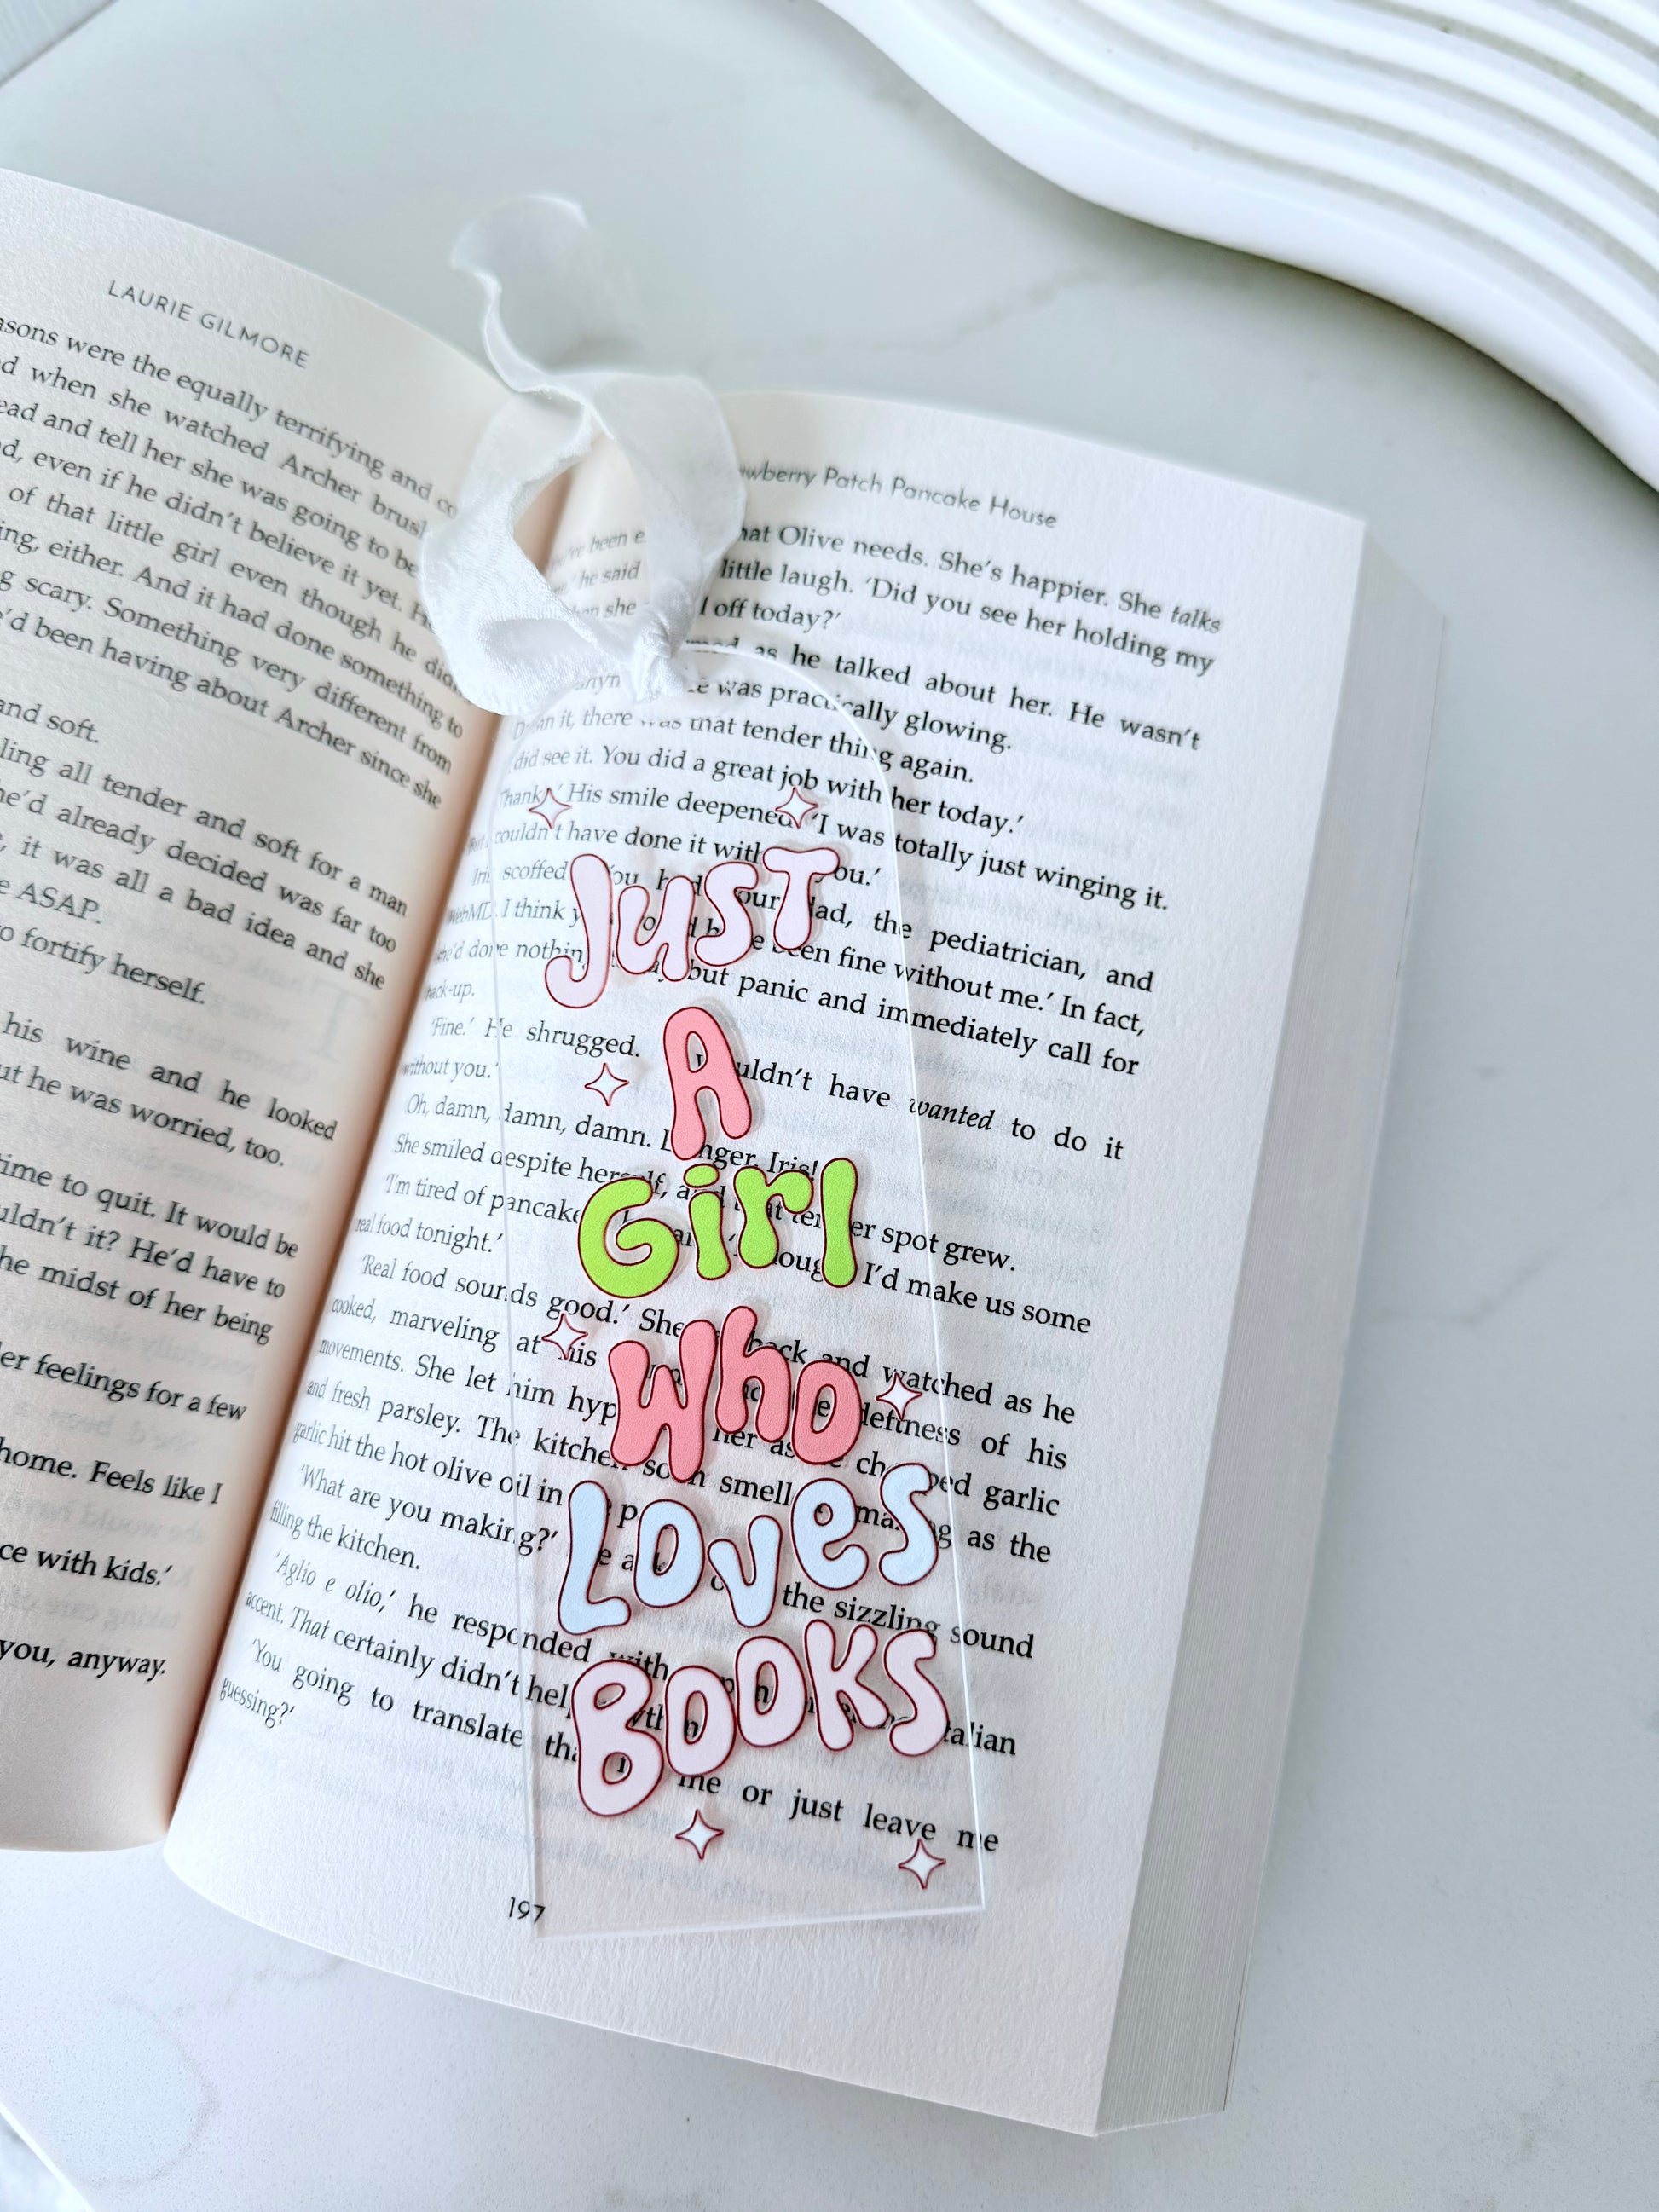 LAURIE GILMORE
were the equally terrifying and
when she watched Archer
and tell her she was going to be
even if he didn't believe it yet.
of that little girl even though he
either. And it had done something to
scary. Something very different from
been having about Archer since she
and soft.
all tender and soft for a man
already decided was far too
it was all a bad idea and she
ASAP.
fortify herself.
his wine and he looked
he was worried, too.
time to quit. It would be
it? He'd have to
midst of her being
feelings for a few
home. Feels like I
with kids.'
you, anyway.
Patch Pancake House
been
Olive needs. She's happier. She talks
he said
little laugh. 'Did you see her holding my
she
off today?'
as he talked about her. He wasn't
was practically glowing.
it, there was that tender thing again.
did see it. You did a great job with her today.'
His smile deepened. 'I was totally just winging it.
couldn't have done it without you.'
Iris scoffed. 'You had your dad, the pediatrician, and
WebMD. I think you would have been fine without me.' In fact,
she'd done nothing but panic and immediately call for
back-up.
'Fine.' He shrugged. wouldn't have wanted to do it
without you.'
Oh, damn, damn, damn. Danger, Iris!
She smiled despite herself, and that tender spot grew.
'I'm tired of pancakes I'd make us some
real food tonight.'
'Real food sounds good.' She back and watched as he
cooked, marveling at his deftness of his
movements. She let him her as he chopped garlic
and fresh parsley. The kitchen soon smelled amazing as the
garlic hit the hot olive oil in the
'What are you making?' the sizzling sound
filling the kitchen.
'Aglio e olio,' he responded with Italian
accent. That certainly didn't help
'You going to translate that me or just leave me
guessing?'
197
JUST
A
Girl
Who
Loves
BOOKS